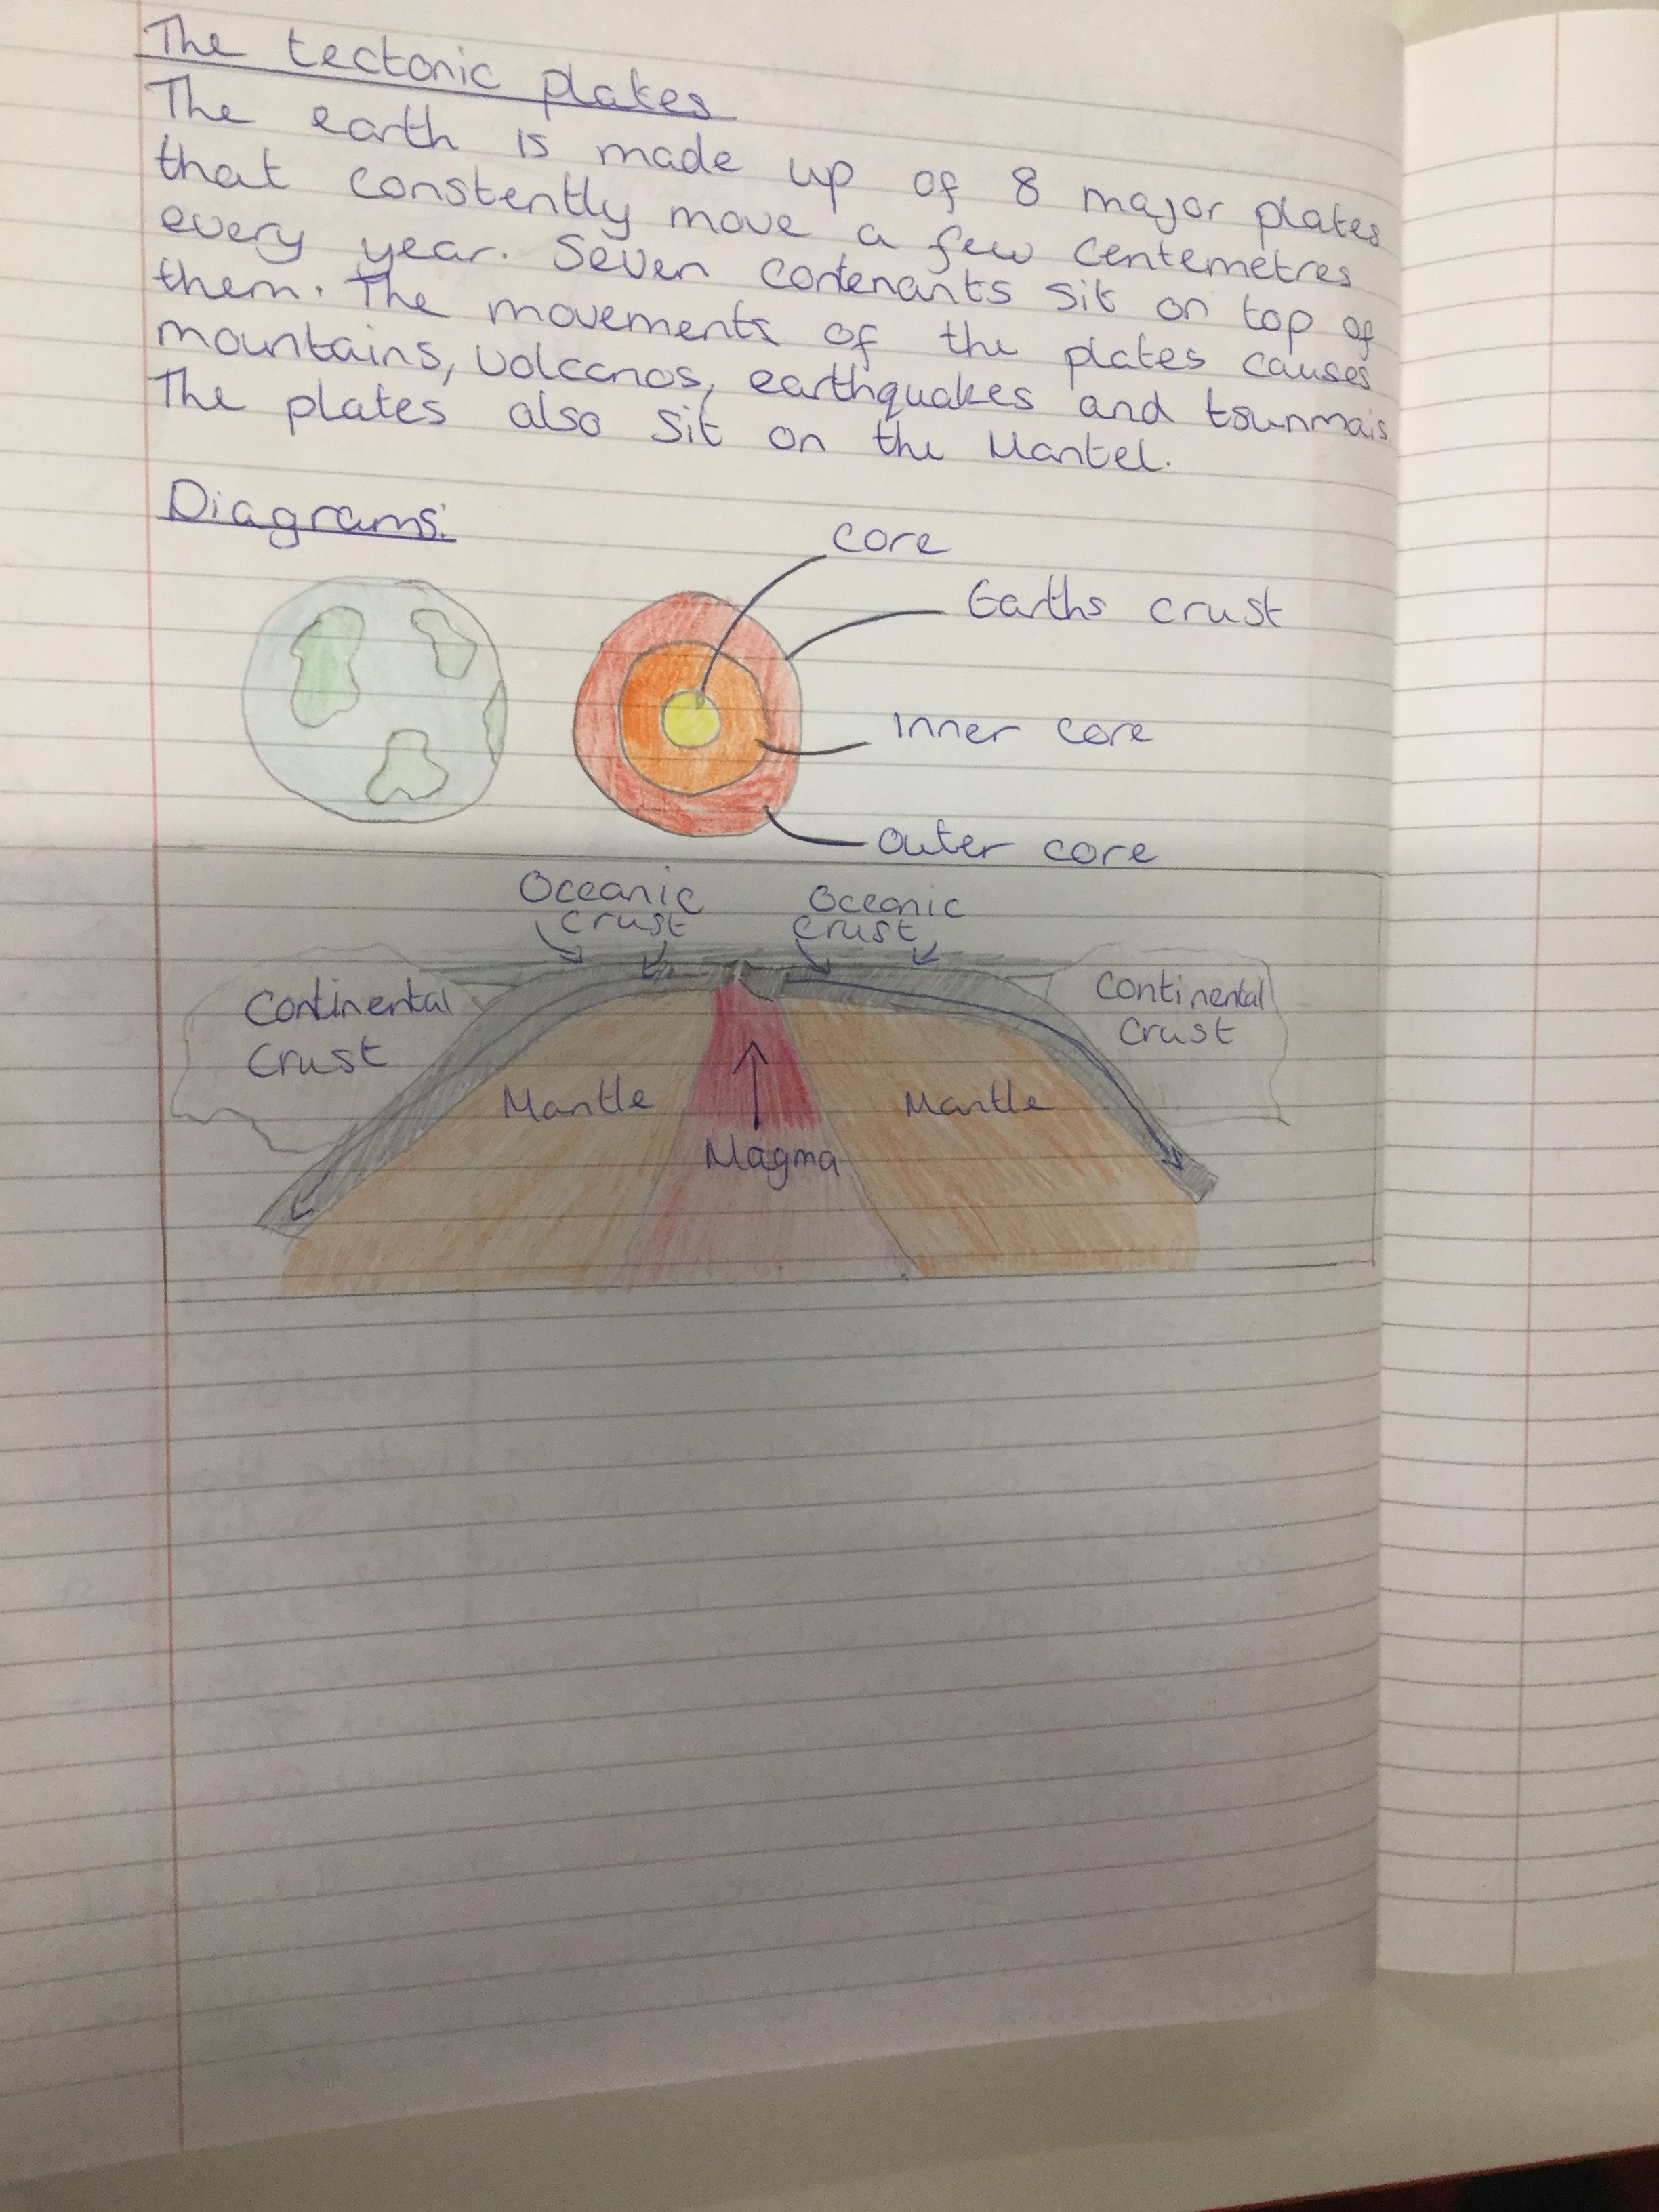 The tectonic plates
The earth is made up of 8 major plates
that constently move a few centemetres
every year. Seven contenants sit on top of
them. The movements of the plates causes
mountains, volcanos, earthquakes and tsunmais
The plates also sit on the Mantel.
Diagrams:
core
Earths crust
inner core
outer core
Oceanic
crust
Oceanic
crust
Continental
crust
Continental
crust
Mantle
Mantle
Magma